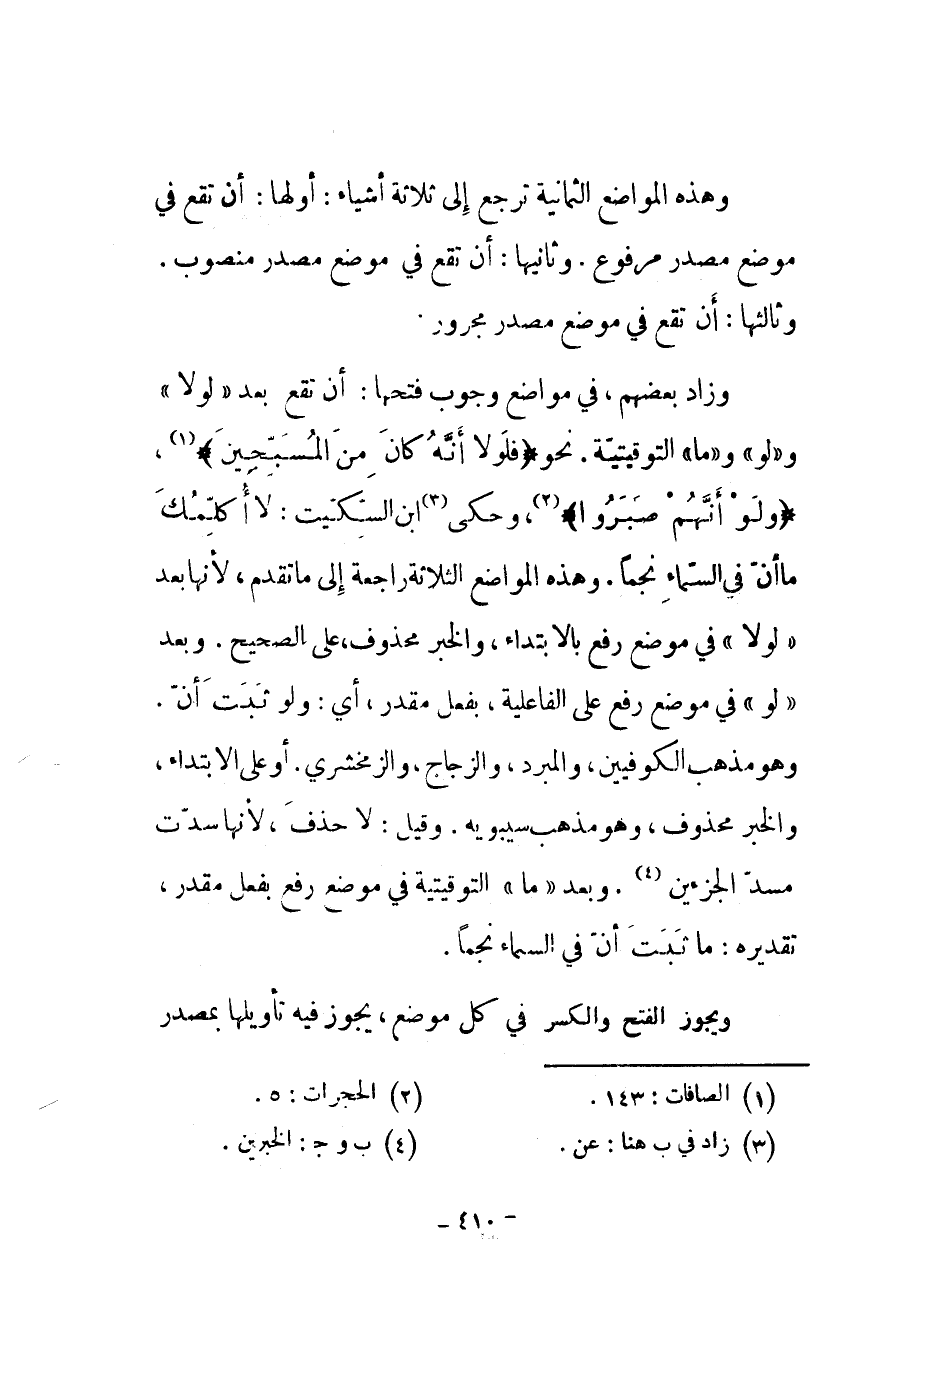 وهذه المواضع الثمانية ترجع إلى ثلاثة أشياء : أولها : أن تقع في
موضع مصدر مرفوع . وثانيها : أن تقع في موضع مصدر منصوب .
وثالثها : أَن تقع في موضع مصدر مجرور .
وزاد بعضهم ، في مواضع وجوب فتحها : أن تقع بعد « لولا »
و«لو» و«ما» التوقيتيّة . نحو ﴿فلَولا أَنَّهُ كانَ مِنَ المُسَبّحِينَ﴾(١) ،
﴿ولَوْ أَنَّهُمْ صَبَرُوا﴾(٢) ، وحكى(٣) ابن السّكّيت : لا أُكلّمُكَ
ما أنّ في السّماءِ نجماً . وهذه المواضع الثلاثة راجعة إلى ما تقدم ، لأنها بعد
« لولا » في موضع رفع بالابتداء ، والخبر محذوف ، على الصحيح . وبعد
« لو » في موضع رفع على الفاعلية ، بفعل مقدر ، أي : ولو ثَبَتَ أنّ .
وهو مذهب الكوفيين ، والمبرد ، والزجاج ، والزمخشري . أو على الابتداء ،
والخبر محذوف ، وهو مذهب سيبويه . وقيل : لا حذفَ ، لأنها سدّت
مسدّ الجزءين (٤) . وبعد « ما » التوقيتية في موضع رفع بفعل مقدر ،
تقديره : ما ثَبَتَ أنّ في السماء نجماً .
ويجوز الفتح والكسر في كل موضع ، يجوز فيه تأويلها بمصدر
(١) الصافات : ١٤٣ . (٢) الحجرات : ٥ .
(٣) زاد في ب هنا : عن . (٤) ب و جـ : الخبرين .
- ٤١٠ -